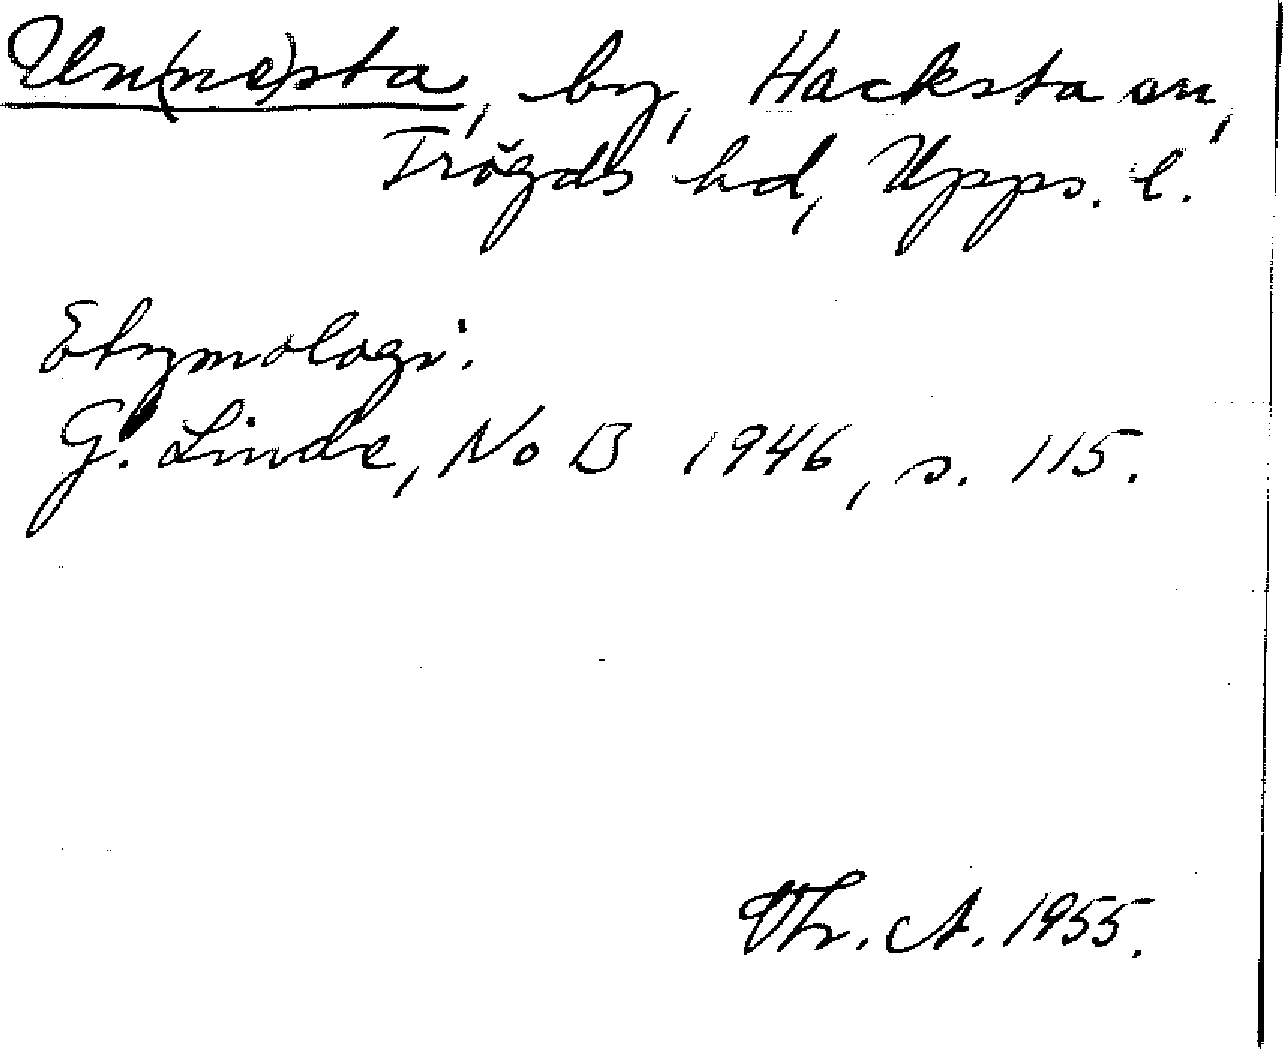 Un(ne)sta, by, Hacksta sn,
Trögds hd, Upps. l.
Etymologi:
G. Linde, NoB 1946, s. 115.
Th. A. 1955.